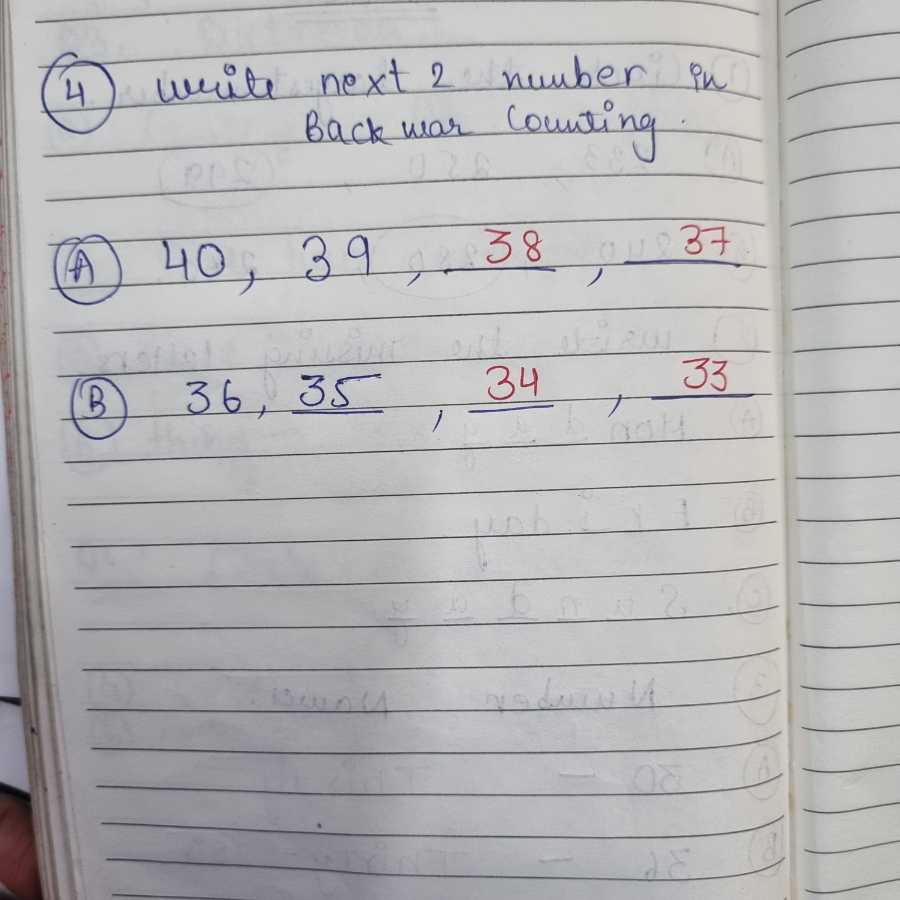 4 write next 2 number in
Back war Counting.
A 40, 39, 38, 37
B 36, 35, 34, 33